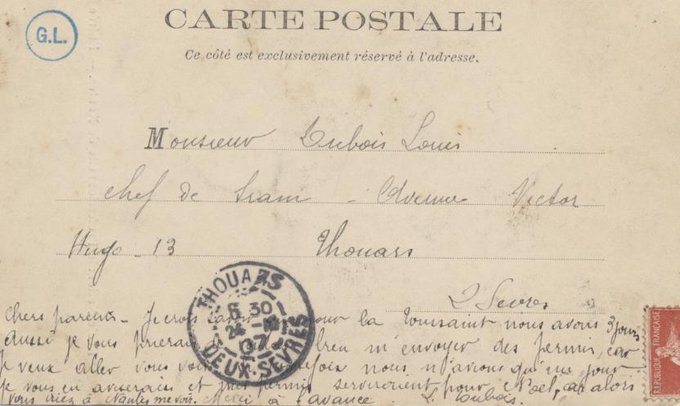 G.L.
CARTE POSTALE
Ce côté est exclusivement réservé à l'adresse.
Monsieur Dubois Louis
Chef de train - Avenue Victor
Hugo - 13 Thouars
2 Sèvres
THOUARS
6 30
24
07
DEUX-SÈVRES
Chers parents - Je crois pour la Toussaint nous avons 3 jours
Aussi je vous prierais bien m'envoyer des permis, car
je veux aller vous voir nous n'avons qu'un jour
je vous en aviserais et permis serviraient pour Noël, ou alors
vous à Nantes me voir. Merci d'avance L. Dubois
REPUBLIQUE FRANÇAISE